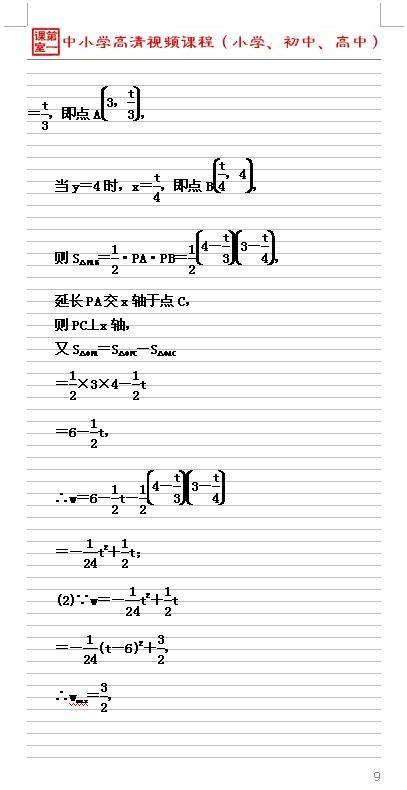 课第
室一 中小学高清视频课程（小学、初中、高中）
=t/3，即点A(3，t/3)，
当y=4时，x=t/4，即点B(t/4，4)，
则S△PAB=1/2·PA·PB=1/2(4-t/3)(3-t/4)，
延长PA交x轴于点C，
则PC⊥x轴，
又S△OPA=S△OPC-S△OAC
=1/2×3×4-1/2t
=6-1/2t，
∴w=6-1/2t-1/2(4-t/3)(3-t/4)
=-1/24t²+1/2t；
(2)∵w=-1/24t²+1/2t
=-1/24(t-6)²+3/2，
∴wmax=3/2，
9